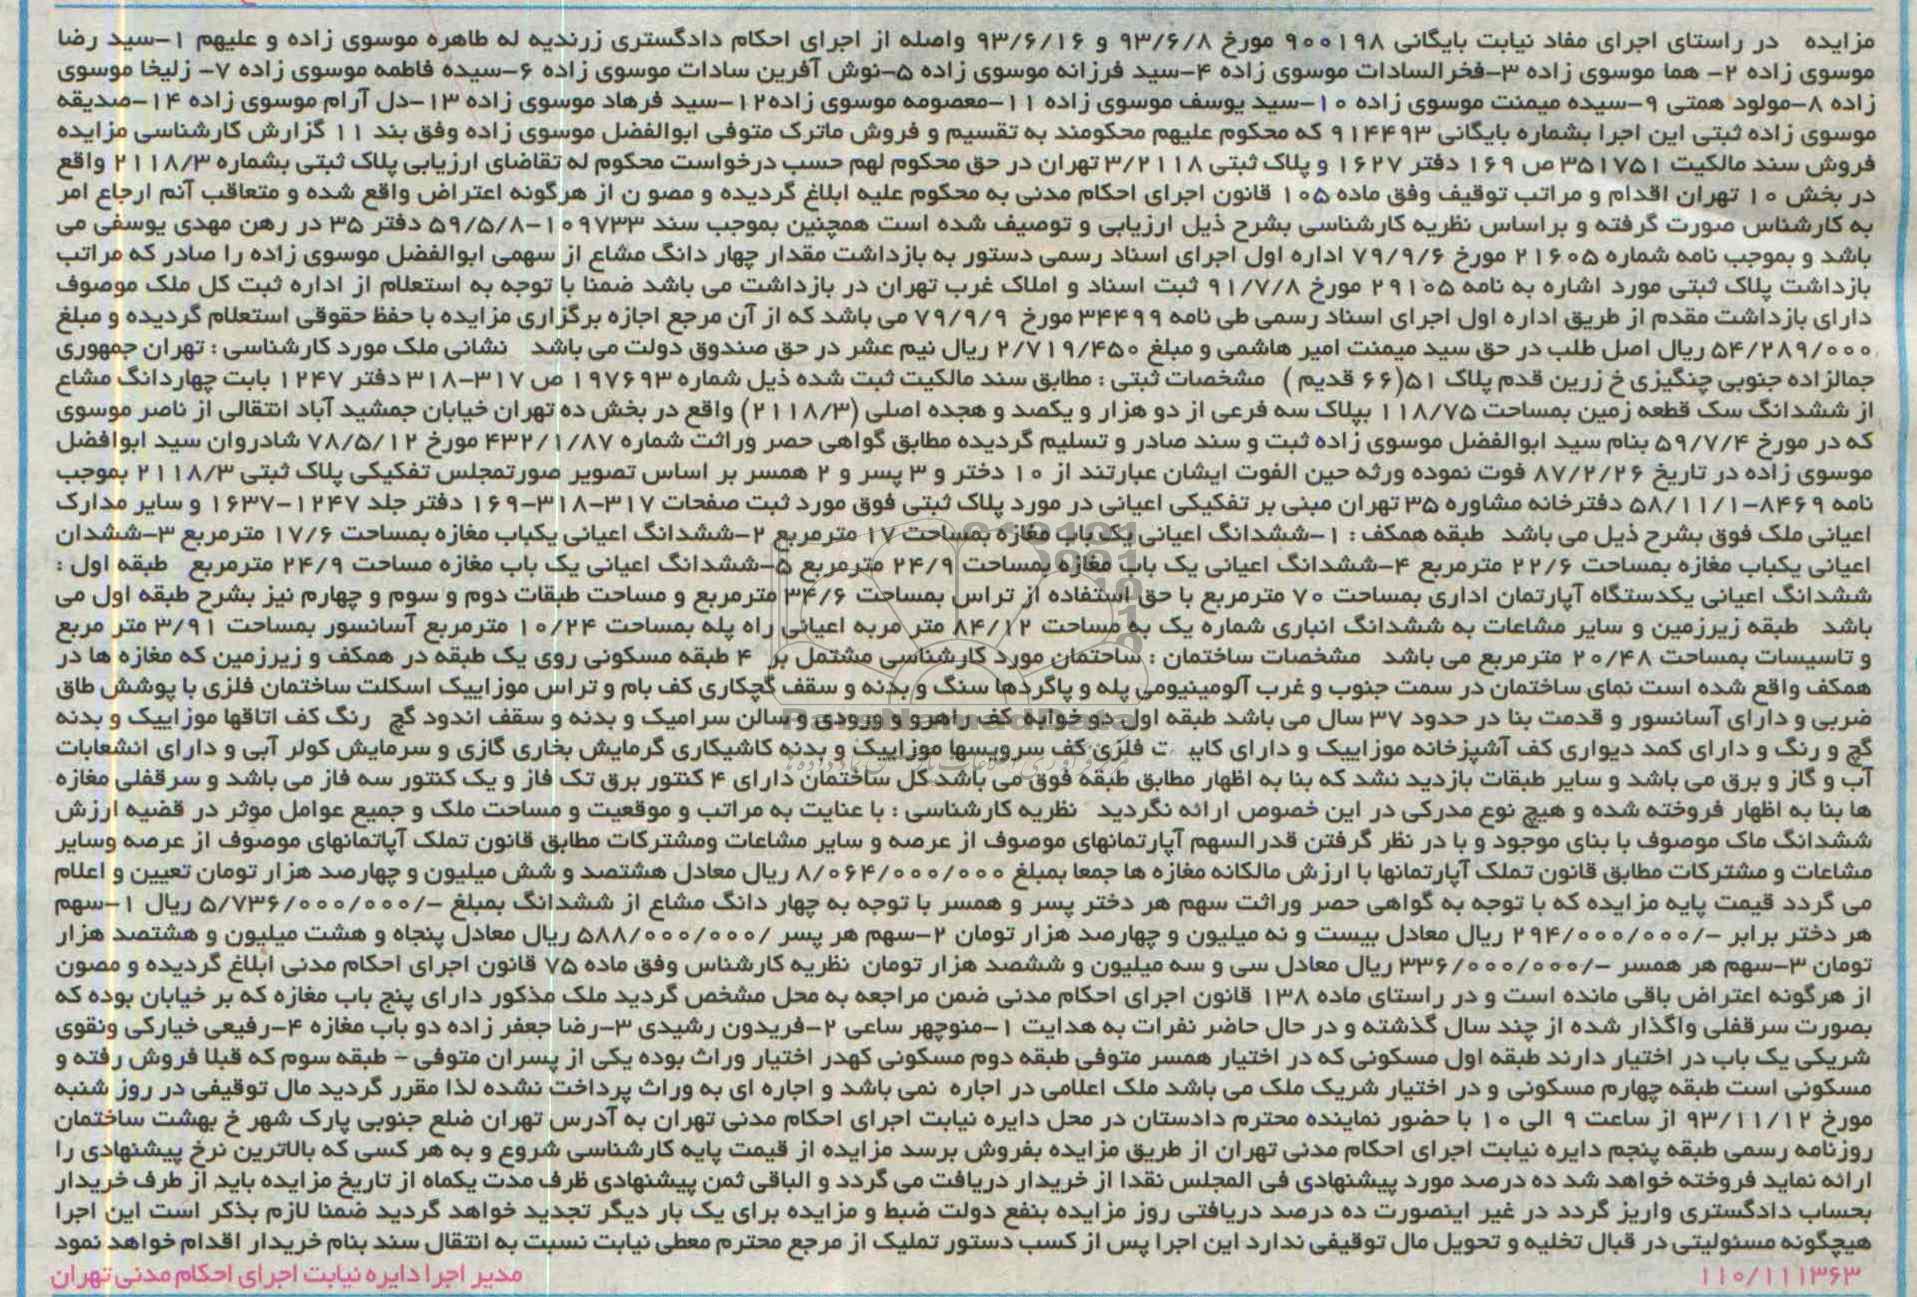 مزایده در راستای اجرای مفاد نیابت بایگانی ۹۰۰۱۹۸ مورخ ۹۳/۶/۸ و ۹۳/۶/۱۶ واصله از اجرای احکام دادگستری زرندیه له طاهره موسوی زاده و علیهم ۱-سید رضا
موسوی زاده ۲- هما موسوی زاده ۳-فخرالسادات موسوی زاده ۴-سید فرزانه موسوی زاده ۵-نوش آفرین سادات موسوی زاده ۶-سیده فاطمه موسوی زاده ۷- زلیخا موسوی
زاده ۸-مولود همتی ۹-سیده میمنت موسوی زاده ۱۰-سید یوسف موسوی زاده ۱۱-معصومه موسوی زاده۱۲-سید فرهاد موسوی زاده ۱۳-دل آرام موسوی زاده ۱۴-صدیقه
موسوی زاده ثبتی این اجرا بشماره بایگانی ۹۱۴۴۹۳ که محکوم علیهم محکومند به تقسیم و فروش ماترک متوفی ابوالفضل موسوی زاده وفق بند ۱۱ گزارش کارشناسی مزایده
فروش سند مالکیت ۳۵۱۷۵۱ ص ۱۶۹ دفتر ۱۶۲۷ و پلاک ثبتی ۳/۲۱۱۸ تهران در حق محکوم لهم حسب درخواست محکوم له تقاضای ارزیابی پلاک ثبتی بشماره ۲۱۱۸/۳ واقع
در بخش ۱۰ تهران اقدام و مراتب توقیف وفق ماده ۱۰۵ قانون اجرای احکام مدنی به محکوم علیه ابلاغ گردیده و مصو ن از هرگونه اعتراض واقع شده و متعاقب آنم ارجاع امر
به کارشناس صورت گرفته و براساس نظریه کارشناسی بشرح ذیل ارزیابی و توصیف شده است همچنین بموجب سند ۱۰۹۷۳۳-۵۹/۵/۸ دفتر ۳۵ در رهن مهدی یوسفی می
باشد و بموجب نامه شماره ۲۱۶۰۵ مورخ ۷۹/۹/۶ اداره اول اجرای اسناد رسمی دستور به بازداشت مقدار چهار دانگ مشاع از سهمی ابوالفضل موسوی زاده را صادر که مراتب
بازداشت پلاک ثبتی مورد اشاره به نامه ۲۹۱۰۵ مورخ ۹۱/۷/۸ ثبت اسناد و املاک غرب تهران در بازداشت می باشد ضمنا با توجه به استعلام از اداره ثبت کل ملک موصوف
دارای بازداشت مقدم از طریق اداره اول اجرای اسناد رسمی طی نامه ۳۴۴۹۹ مورخ ۷۹/۹/۹ می باشد که از آن مرجع اجازه برگزاری مزایده با حفظ حقوقی استعلام گردیده و مبلغ
۵۴/۲۸۹/۰۰۰ ریال اصل طلب در حق سید میمنت امیر هاشمی و مبلغ ۲/۷۱۹/۴۵۰ ریال نیم عشر در حق صندوق دولت می باشد نشانی ملک مورد کارشناسی : تهران جمهوری
جمالزاده جنوبی چنگیزی خ زرین قدم پلاک ۵۱(۶۶ قدیم ) مشخصات ثبتی : مطابق سند مالکیت ثبت شده ذیل شماره ۱۹۷۶۹۳ ص ۳۱۷-۳۱۸ دفتر ۱۲۴۷ بابت چهاردانگ مشاع
از ششدانگ سک قطعه زمین بمساحت ۱۱۸/۷۵ بپلاک سه فرعی از دو هزار و یکصد و هجده اصلی (۲۱۱۸/۳) واقع در بخش ده تهران خیابان جمشید آباد انتقالی از ناصر موسوی
که در مورخ ۵۹/۷/۴ بنام سید ابوالفضل موسوی زاده ثبت و سند صادر و تسلیم گردیده مطابق گواهی حصر وراثت شماره ۴۳۲/۱/۸۷ مورخ ۷۸/۵/۱۲ شادروان سید ابوافضل
موسوی زاده در تاریخ ۸۷/۲/۲۶ فوت نموده ورثه حین الفوت ایشان عبارتند از ۱۰ دختر و ۳ پسر و ۲ همسر بر اساس تصویر صورتمجلس تفکیکی پلاک ثبتی ۲۱۱۸/۳ بموجب
نامه ۸۴۶۹-۵۸/۱۱/۱ دفترخانه مشاوره ۳۵ تهران مبنی بر تفکیکی اعیانی در مورد پلاک ثبتی فوق مورد ثبت صفحات ۳۱۷-۳۱۸-۱۶۹ دفتر جلد ۱۲۴۷-۱۶۳۷ و سایر مدارک
اعیانی ملک فوق بشرح ذیل می باشد طبقه همکف : ۱-ششدانگ اعیانی یک باب مغازه بمساحت ۱۷ مترمربع ۲-ششدانگ اعیانی یکباب مغازه بمساحت ۱۷/۶ مترمربع ۳-ششدان
اعیانی یکباب مغازه بمساحت ۲۲/۶ مترمربع ۴-ششدانگ اعیانی یک باب مغازه بمساحت ۲۴/۹ مترمربع ۵-ششدانگ اعیانی یک باب مغازه مساحت ۲۴/۹ مترمربع طبقه اول :
ششدانگ اعیانی یکدستگاه آپارتمان اداری بمساحت ۷۰ مترمربع با حق استفاده از تراس بمساحت ۳۴/۶ مترمربع و مساحت طبقات دوم و سوم و چهارم نیز بشرح طبقه اول می
باشد طبقه زیرزمین و سایر مشاعات به ششدانگ انباری شماره یک به مساحت ۸۴/۱۲ متر مربه اعیانی راه پله بمساحت ۱۰/۲۴ مترمربع آسانسور بمساحت ۳/۹۱ متر مربع
و تاسیسات بمساحت ۲۰/۴۸ مترمربع می باشد مشخصات ساختمان : ساختمان مورد کارشناسی مشتمل بر ۴ طبقه مسکونی روی یک طبقه در همکف و زیرزمین که مغازه ها در
همکف واقع شده است نمای ساختمان در سمت جنوب و غرب آلومینیومی پله و پاگردها سنگ و بدنه و سقف گچکاری کف بام و تراس موزاییک اسکلت ساختمان فلزی با پوشش طاق
ضربی و دارای آسانسور و قدمت بنا در حدود ۳۷ سال می باشد طبقه اول دو خوابه کف راهرو و ورودی و سالن سرامیک و بدنه و سقف اندود گچ رنگ کف اتاقها موزاییک و بدنه
گچ و رنگ و دارای کمد دیواری کف آشپزخانه موزاییک و دارای فلزی کف سرویسها موزاییک و بدنه کاشیکاری گرمایش بخاری گازی و سرمایش کولر آبی و دارای انشعابات
آب و گاز و برق می باشد و سایر طبقات بازدید نشد که بنا به اظهار مطابق طبقه فوق می باشد کل ساختمان دارای ۴ کنتور برق تک فاز و یک کنتور سه فاز می باشد و سرقفلی مغازه
ها بنا به اظهار فروخته شده و هیچ نوع مدرکی در این خصوص ارائه نگردید نظریه کارشناسی : با عنایت به مراتب و موقعیت و مساحت ملک و جمیع عوامل موثر در قضیه ارزش
ششدانگ ماک موصوف با بنای موجود و با در نظر گرفتن قدرالسهم آپارتمانهای موصوف از عرصه و سایر مشاعات ومشترکات مطابق قانون تملک آپاتمانهای موصوف از عرصه وسایر
مشاعات و مشترکات مطابق قانون تملک آپارتمانها با ارزش مالکانه مغازه ها جمعا بمبلغ ۸/۰۶۴/۰۰۰/۰۰۰ ریال معادل هشتصد و شش میلیون و چهارصد هزار تومان تعیین و اعلام
می گردد قیمت پایه مزایده که با توجه به گواهی حصر وراثت سهم هر دختر پسر و همسر با توجه به چهار دانگ مشاع از ششدانگ بمبلغ -/۵/۷۳۶/۰۰۰/۰۰۰ ریال ۱-سهم
هر دختر برابر -/۲۹۴/۰۰۰/۰۰۰ ریال معادل بیست و نه میلیون و چهارصد هزار تومان ۲-سهم هر پسر /۵۸۸/۰۰۰/۰۰۰ ریال معادل پنجاه و هشت میلیون و هشتصد هزار
تومان ۳-سهم هر همسر -/۳۳۶/۰۰۰/۰۰۰ ریال معادل سی و سه میلیون و ششصد هزار تومان نظریه کارشناس وفق ماده ۷۵ قانون اجرای احکام مدنی ابلاغ گردیده و مصون
از هرگونه اعتراض باقی مانده است و در راستای ماده ۱۳۸ قانون اجرای احکام مدنی ضمن مراجعه به محل مشخص گردید ملک مذکور دارای پنج باب مغازه که بر خیابان بوده که
بصورت سرقفلی واگذار شده از چند سال گذشته و در حال حاضر نفرات به هدایت ۱-منوچهر ساعی ۲-فریدون رشیدی ۳-رضا جعفر زاده دو باب مغازه ۴-رفیعی خیارکی ونقوی
شریکی یک باب در اختیار دارند طبقه اول مسکونی که در اختیار همسر متوفی طبقه دوم مسکونی کهدر اختیار وراث بوده یکی از پسران متوفی - طبقه سوم که قبلا فروش رفته و
مسکونی است طبقه چهارم مسکونی و در اختیار شریک ملک می باشد ملک اعلامی در اجاره نمی باشد و اجاره ای به وراث پرداخت نشده لذا مقرر گردید مال توقیفی در روز شنبه
مورخ ۹۳/۱۱/۱۲ از ساعت ۹ الی ۱۰ با حضور نماینده محترم دادستان در محل دایره نیابت اجرای احکام مدنی تهران به آدرس تهران ضلع جنوبی پارک شهر خ بهشت ساختمان
روزنامه رسمی طبقه پنجم دایره نیابت اجرای احکام مدنی تهران از طریق مزایده بفروش برسد مزایده از قیمت پایه کارشناسی شروع و به هر کسی که بالاترین نرخ پیشنهادی را
ارائه نماید فروخته خواهد شد ده درصد مورد پیشنهادی فی المجلس نقدا از خریدار دریافت می گردد و الباقی ثمن پیشنهادی ظرف مدت یکماه از تاریخ مزایده باید از طرف خریدار
بحساب دادگستری واریز گردد در غیر اینصورت ده درصد دریافتی روز مزایده بنفع دولت ضبط و مزایده برای یک بار دیگر تجدید خواهد گردید ضمنا لازم بذکر است این اجرا
هیچگونه مسئولیتی در قبال تخلیه و تحویل مال توقیفی ندارد این اجرا پس از کسب دستور تملیک از مرجع محترم معطی نیابت نسبت به انتقال سند بنام خریدار اقدام خواهد نمود
۱۱۰/۱۱۱۳۶۳ مدیر اجرا دایره نیابت اجرای احکام مدنی تهران